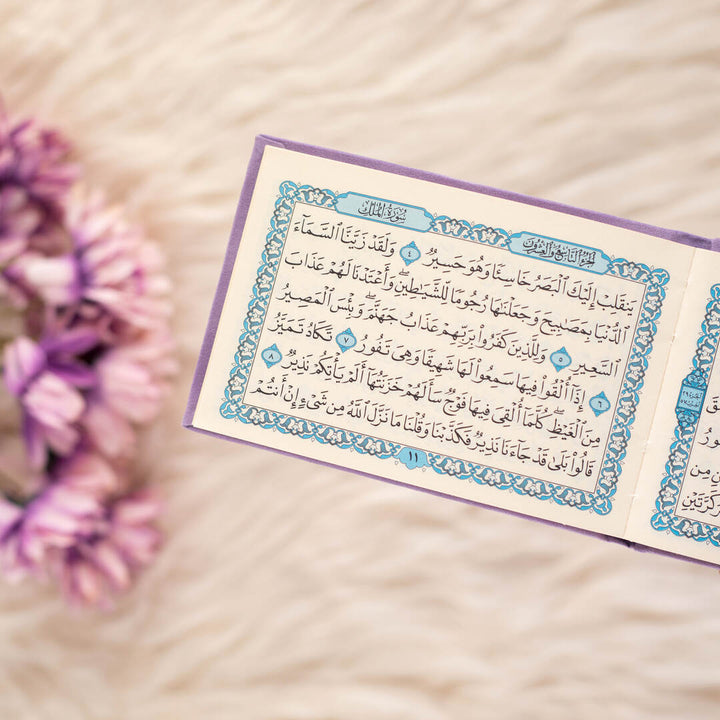 الجزء التاسع والعشرون سورة الملك
يَنقَلِبْ إِلَيْكَ ٱلْبَصَرُ خَاسِئًا وَهُوَ حَسِيرٌ ٤ وَلَقَدْ زَيَّنَّا ٱلسَّمَآءَ
ٱلدُّنْيَا بِمَصَٰبِيحَ وَجَعَلْنَٰهَا رُجُومًا لِّلشَّيَٰطِينِۖ وَأَعْتَدْنَا لَهُمْ عَذَابَ
ٱلسَّعِيرِ ٥ وَلِلَّذِينَ كَفَرُوا۟ بِرَبِّهِمْ عَذَابُ جَهَنَّمَۖ وَبِئْسَ ٱلْمَصِيرُ
٦ إِذَآ أُلْقُوا۟ فِيهَا سَمِعُوا۟ لَهَا شَهِيقًا وَهِىَ تَفُورُ ٧ تَكَادُ تَمَيَّزُ
مِنَ ٱلْغَيْظِۖ كُلَّمَآ أُلْقِىَ فِيهَا فَوْجٌ سَأَلَهُمْ خَزَنَتُهَآ أَلَمْ يَأْتِكُمْ نَذِيرٌ ٨
قَالُوا۟ بَلَىٰ قَدْ جَآءَنَا نَذِيرٌ فَكَذَّبْنَا وَقُلْنَا مَا نَزَّلَ ٱللَّهُ مِن شَىْءٍ إِنْ أَنتُمْ
١١
مِن
كَرَّتَيْنِ